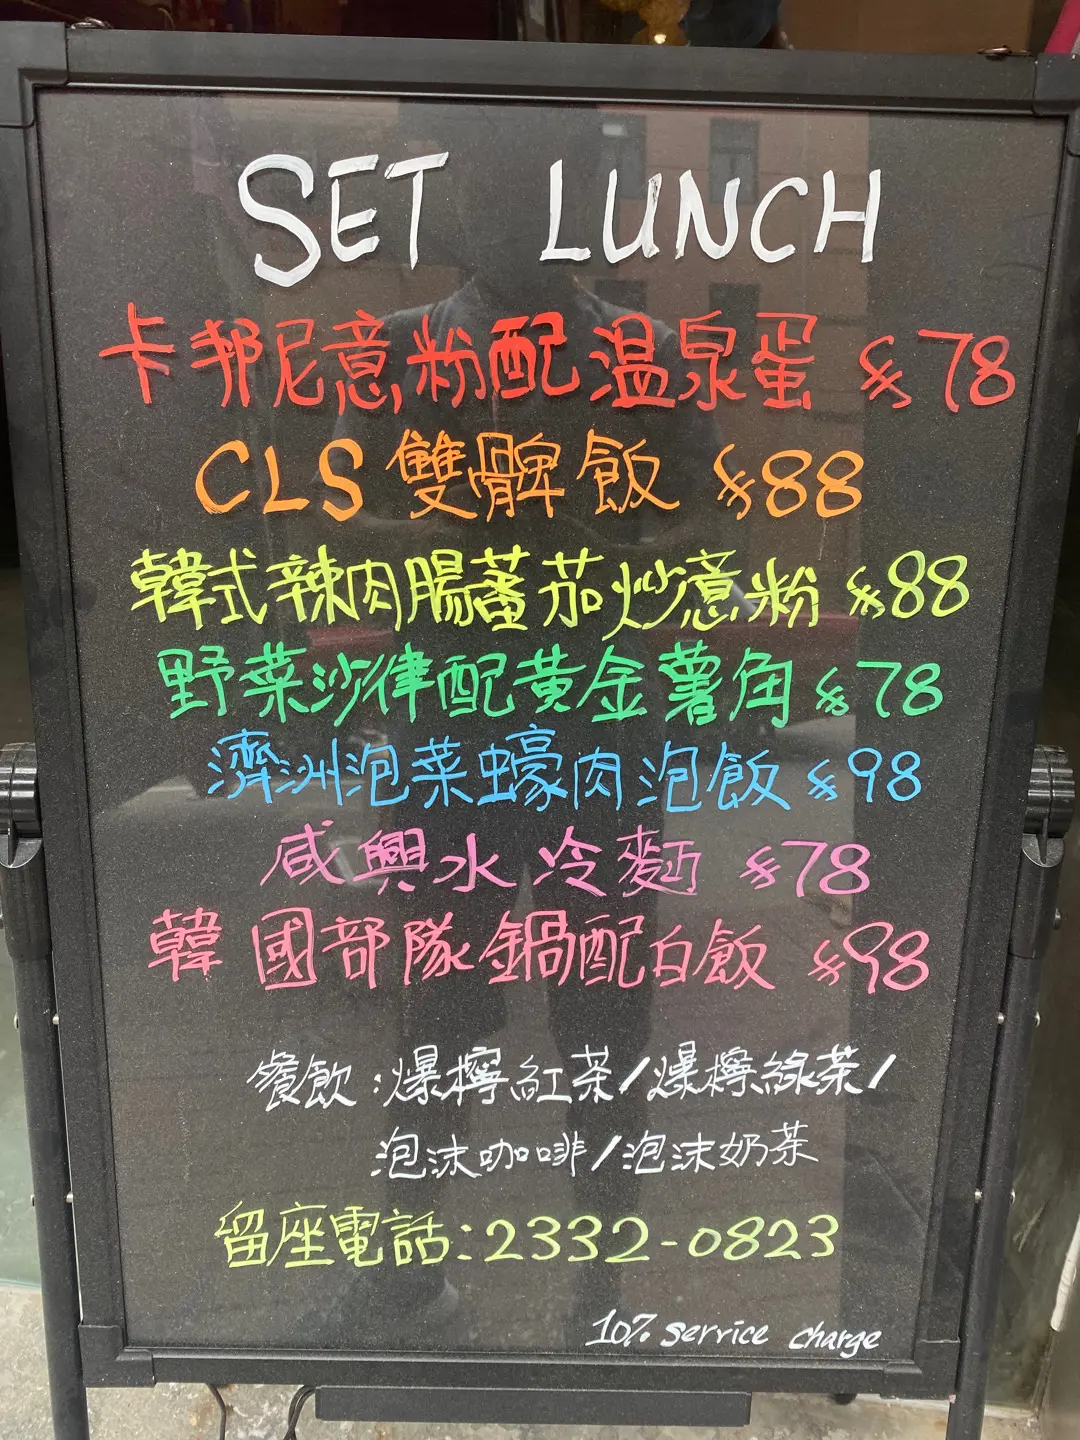 SET LUNCH
卡邦尼意粉配温泉蛋 $78
CLS 雙髀飯 $88
韓式辣肉腸蕃茄炒意粉 $88
野菜沙律配黃金薯角 $78
濟洲泡菜蠔肉泡飯 $98
咸興水冷麵 $78
韓國部隊鍋配白飯 $98
餐飲:爆檸紅茶/爆檸綠茶/
泡沫咖啡/泡沫奶茶
留座電話:2332-0823
10% service charge